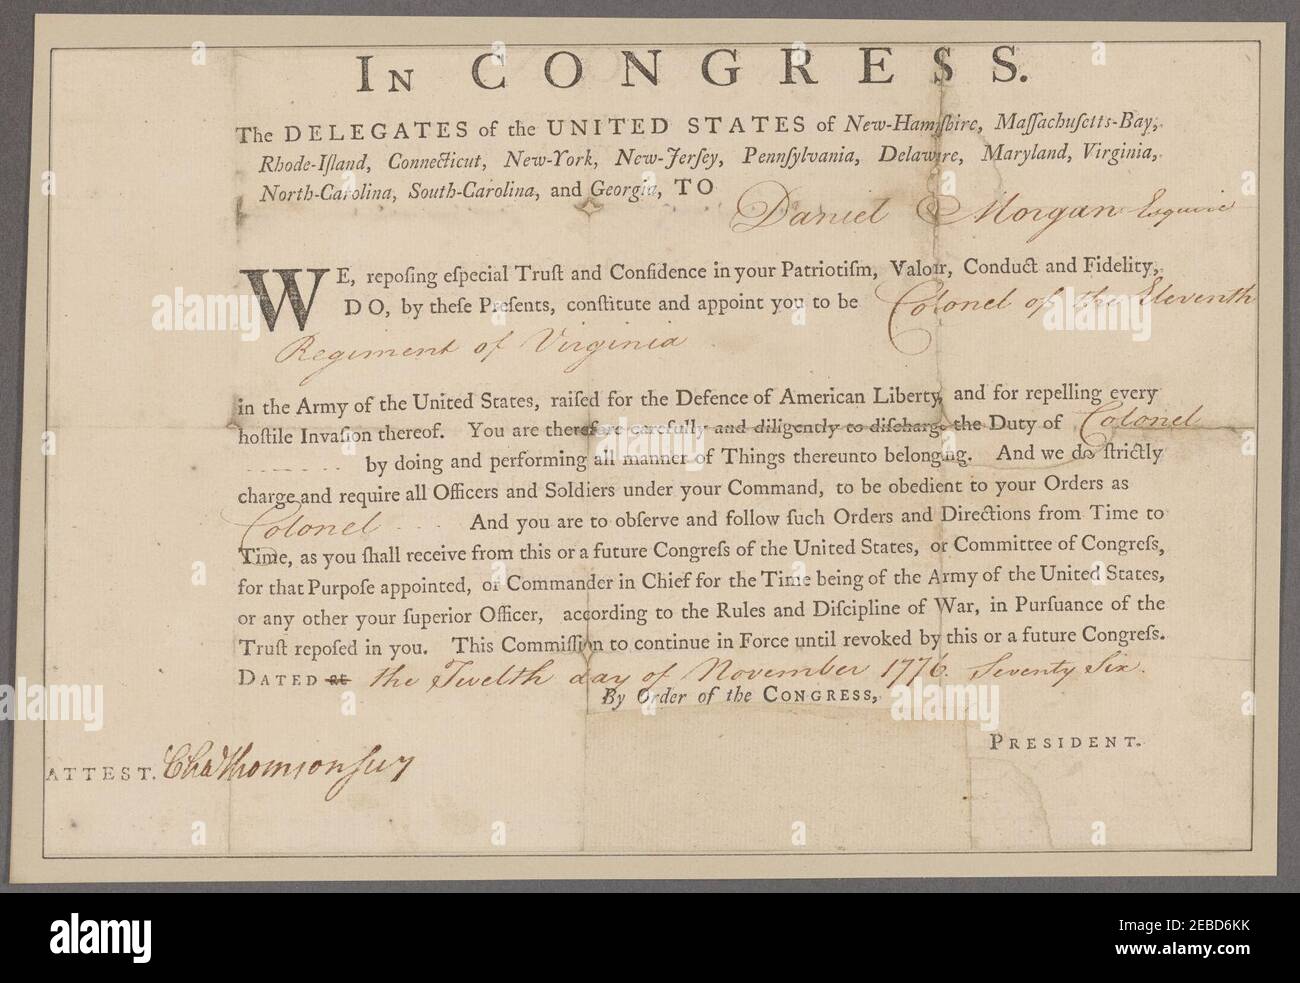 IN CONGRESS.
The DELEGATES of the UNITED STATES of New-Hampſhire, Maſſachuſetts-Bay,
Rhode-Iſland, Connecticut, New-York, New-Jerſey, Pennſylvania, Delaware, Maryland, Virginia,
North-Carolina, South-Carolina, and Georgia, TO
Daniel Morgan Esquire
WE, repoſing eſpecial Truſt and Confidence in your Patriotiſm, Valour, Conduct and Fidelity,
DO, by theſe Preſents, conſtitute and appoint you to be Colonel of the Eleventh
Regiment of Virginia
in the Army of the United States, raiſed for the Defence of American Liberty, and for repelling every
hoſtile Invaſion thereof. You are therefore carefully and diligently to diſcharge the Duty of Colonel
by doing and performing all manner of Things thereunto belonging. And we do ſtrictly
charge and require all Officers and Soldiers under your Command, to be obedient to your Orders as
Colonel And you are to obſerve and follow ſuch Orders and Directions from Time to
Time, as you ſhall receive from this or a future Congreſs of the United States, or Committee of Congreſs,
for that Purpoſe appointed, or Commander in Chief for the Time being of the Army of the United States,
or any other your ſuperior Officer, according to the Rules and Diſcipline of War, in Purſuance of the
Truſt repoſed in you. This Commiſſion to continue in Force until revoked by this or a future Congreſs.
DATED at the Twelth day of November 1776. Seventy Six.
By Order of the CONGRESS,
PRESIDENT.
ATTEST. Cha Thomson ſecy
alamy
Image ID: 2EBD6KK
www.alamy.com